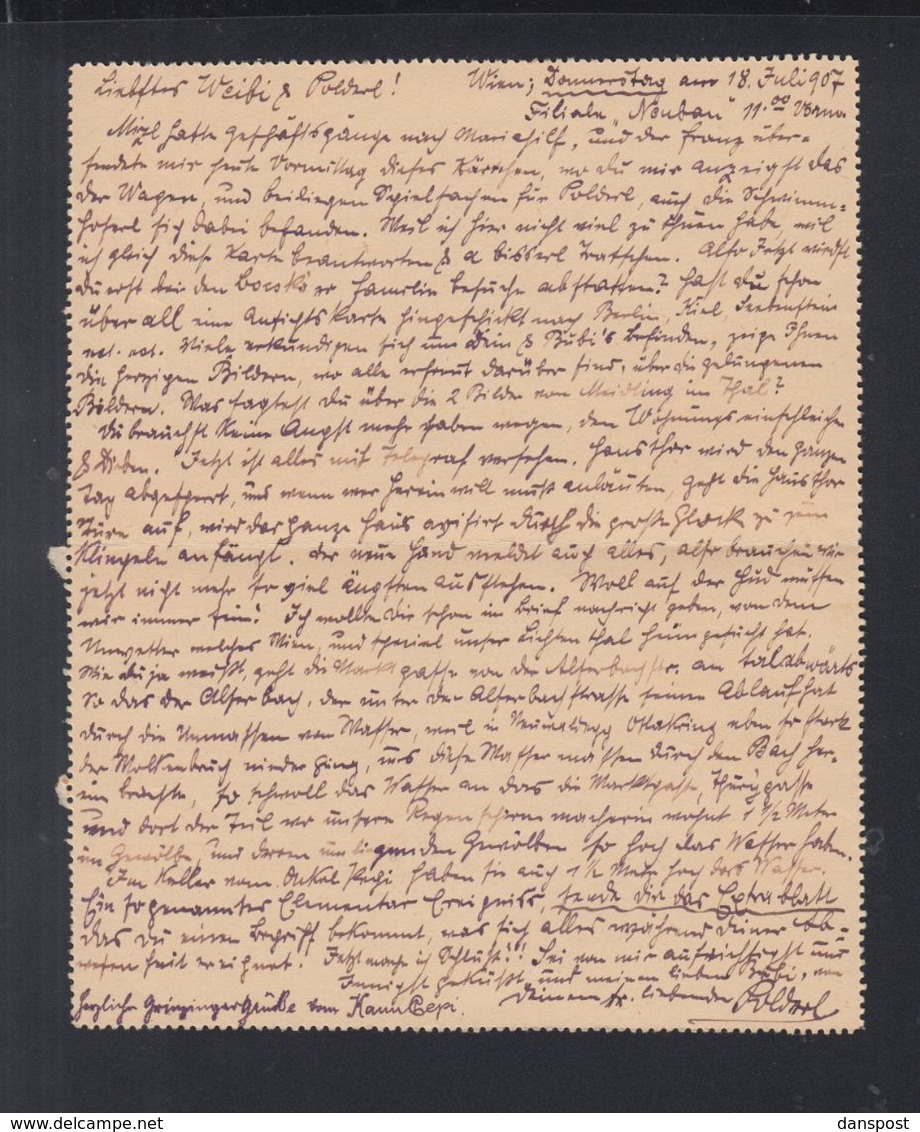 Liebstes Weibi & Polderl! Wien; Donnerstag am 18. Juli 907
Filiale „Neubau" 11.00 Vorm.
Mizl hatte Geschäftsgänge nach Mariahilf, und der Franz über-
sendete mir heute Vormittag dieses Kärtchen, wo du mir anzeigst das
der Wagen, und beiliegen Spielsachen für Polderl, auch die Schwimm-
hoserl sich dabei befanden. Weil ich hier nicht viel zu thuen habe, will
ich gleich diese Karte beantworten & a bisserl tratschen. Also jetzt wirdst
du erst bei den Familie besuche abstatten? Hast du schon
über all eine Ansichtskarte hingeschickt nach Berlin, Kiel, Seebenstein
ect. ect. Viele erkundigen sich um dein & Bubi's befinden, zeige Ihnen
die herzigen Bildern, wo alle erfreut darüber sind, über die gelungenen
Bildern. Was sagtest du über die 2 Bilder von Meidling im Thal?
Du brauchst keine Angst mehr haben wegen, den Wohnungseinschleichen
& Dieben. Jetzt ist alles mit Telegraf versehen. Hausthor wird den ganzen
Tag abgesperrt, und wenn wer herein will muß anläuten, geht die Hausthor
Türe auf, wird das ganze Haus avisirt durch die große Glocke zu
Klingeln anfängt. Der neue Hund meldet auch alles, also brauchen wir
jetzt nicht mehr so viel ängsten ausstehen. Woll auf der Hud müssen
wir immer sein! Ich wollte dir schon im Brief nachricht geben, von dem
Unwetter welches Wien, und speciel unser Lichten thal heim gesucht hat.
Wie du ja weißt, geht die Marktgasse von der Alserbachstr. an taldbwärts
So das der Alserbach, der unter der Alserbachstrasse seinen Ablauf hat
durch die Unmassen von Wasser, weil in Ottakring eben so stark
der Wolkenbruch nieder ging, und diese Wasser massen durch den Bach her-
ein brachte, so schwoll das Wasser an das die Marktgasse, Thurygasse
und dort der Teil wo unsere Regen schirm macherin wohnt 1½ Meter
im Gewölbe, und deren umliegenden Gewölben so hoch das Wasser haben.
Im Keller vom Onkel haben sie auch 1½ Meter hoch das Wasser.
Ein so genanntes Elementar Ereigniss, sende dir das Extrablatt
das du einen Begriff bekommt, was sich alles während deiner Ab-
wesenheit ereignet! Jetzt mache ich Schluß!! Sei von mir aufrichtigst und
Innigst geküßt, und meinen lieben Bubi, von
Herzliche Grinzinger Grüße vom deinem tr. liebenden Polderl